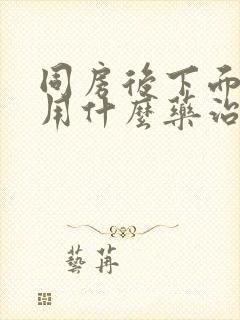 同房后下面
用什麼藥治
藝苒